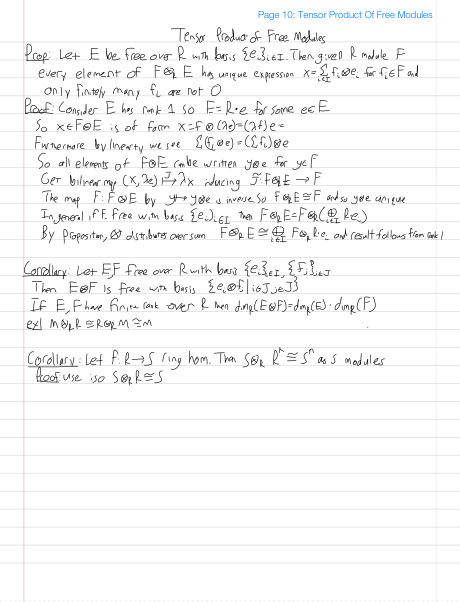 Page 10: Tensor Product Of Free Modules
Tensor Product of Free Modules
Prop: Let E be free over R with basis {e_i}_{i∈I}. Then given R module F
every element of F⊗_R E has unique expression x=Σ_{i∈I} f_i⊗e_i for f_i∈F and
only finitely many f_i are not 0
Proof: Consider E has rank 1 so E=R·e for some e∈E
So x∈F⊗E is of form x=f⊗(λe)=(λf)⊗e
Furthermore by linearity we see Σ(f_i⊗e)=(Σf_i)⊗e
So all elements of F⊗E can be written y⊗e for y∈F
Get bilinear map (x,λe)↦λx inducing f̃:F⊗_R E→F
The map F:F⊗E by y↦y⊗e is inverse so F⊗_R E≅F and so y⊗e unique
In general if E free with basis {e_i}_{i∈I} then F⊗_R E=F⊗_R(⊕_{i∈I} Re_i)
By proposition, ⊗ distributes over sum F⊗_R E≅⊕_{i∈I} F⊗_R R·e_i and result follows from rank 1
Corollary: Let E,F free over R with basis {e_i}_{i∈I}, {f_j}_{j∈J}
Then E⊗F is free with basis {e_i⊗f_j | i∈I, j∈J}
If E,F have finite rank over R then dim_R(E⊗F)=dim_R(E)·dim_R(F)
ex/ M⊗_R R≅R⊗_R M≅M
Corollary: Let f:R→S ring hom. Then S⊗_R R^n≅S^n as S modules
Proof: use iso S⊗_R R≅S